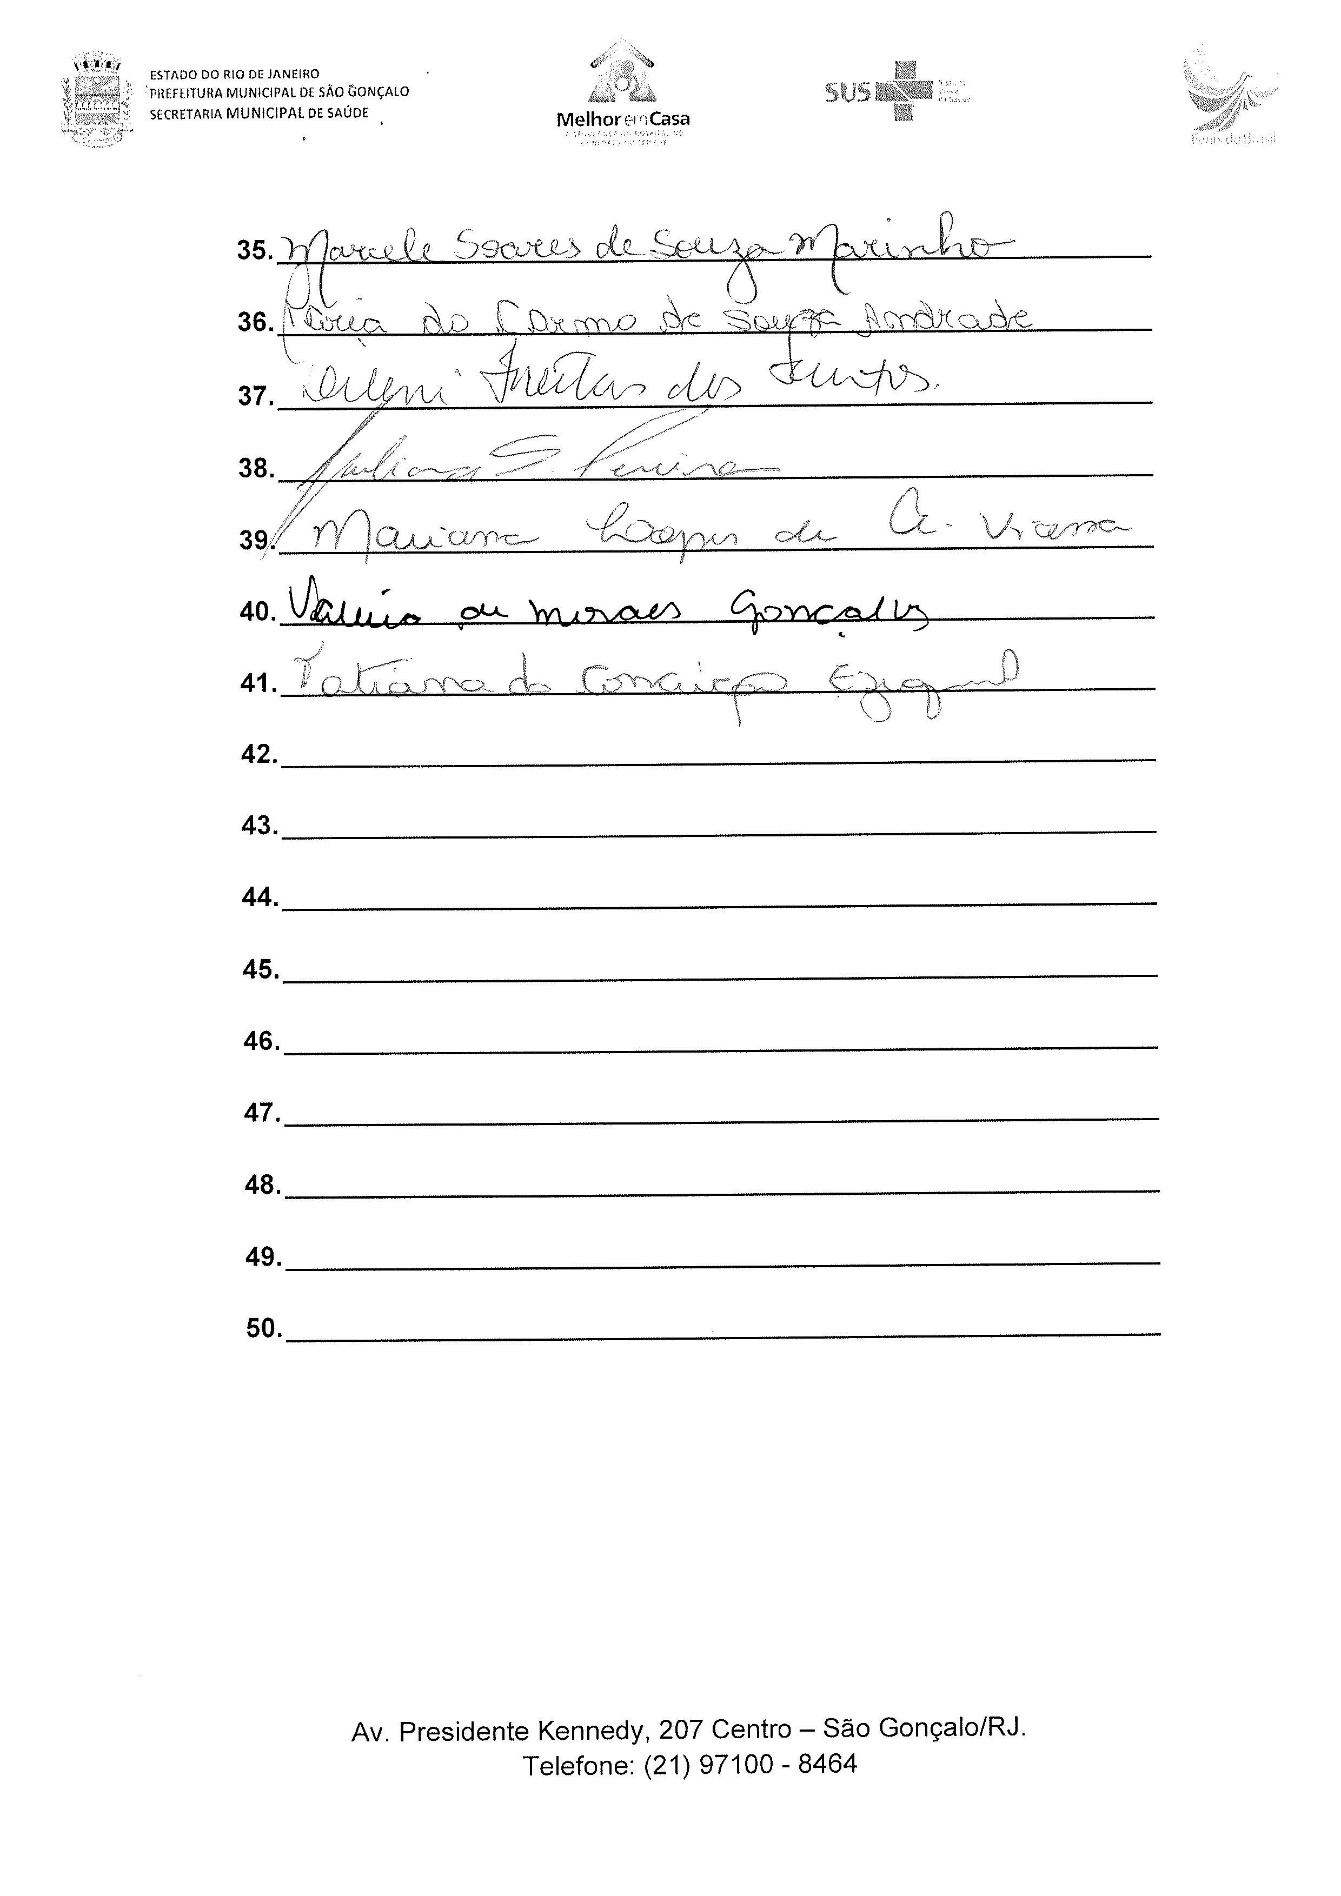 ESTADO DO RIO DE JANEIRO
PREFEITURA MUNICIPAL DE SÃO GONÇALO
SECRETARIA MUNICIPAL DE SAÚDE
Melhor em Casa
SUS
35. Marcele Soares de Souza Marinho
36. Maria do Carmo de Souza Andrade
37. Freitas dos Santos.
38. Juliana S. Pereira
39. Mariana Lopes de A. Vianna
40. Valéria de Moraes Gonçalves
41. Tatiana da Conceição Ezequiel
42.
43.
44.
45.
46.
47.
48.
49.
50.
Av. Presidente Kennedy, 207 Centro – São Gonçalo/RJ.
Telefone: (21) 97100 - 8464